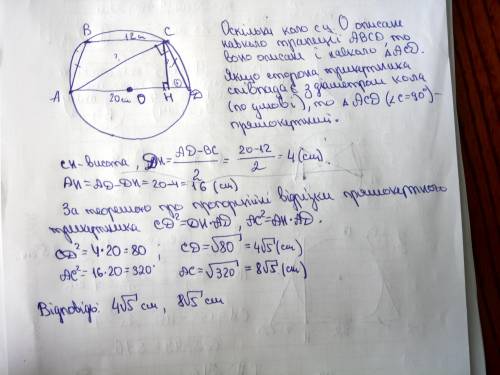 B
12см
C
?
A
20см
O
H
D
Оскільки коло з ц. O описане
навколо трапеції ABCD, то
воно описане і навколо △ACD.
Якщо сторона трикутника
співпадає з діаметром кола
(по умові), то △ACD (∠C=90°) -
прямокутний.
CH - висота, DH = AD-BC/2 = 20-12/2 = 4 (см).
AH = AD - DH = 20-4 = 16 (см)
За теоремою про пропорційні відрізки прямокутного
трикутника CD² = DH·AD, AC² = AH·AD.
CD² = 4·20 = 80; CD = √80 = 4√5 (см)
AC² = 16·20 = 320 AC = √320 = 8√5 (см)
Відповідь: 4√5 см, 8√5 см